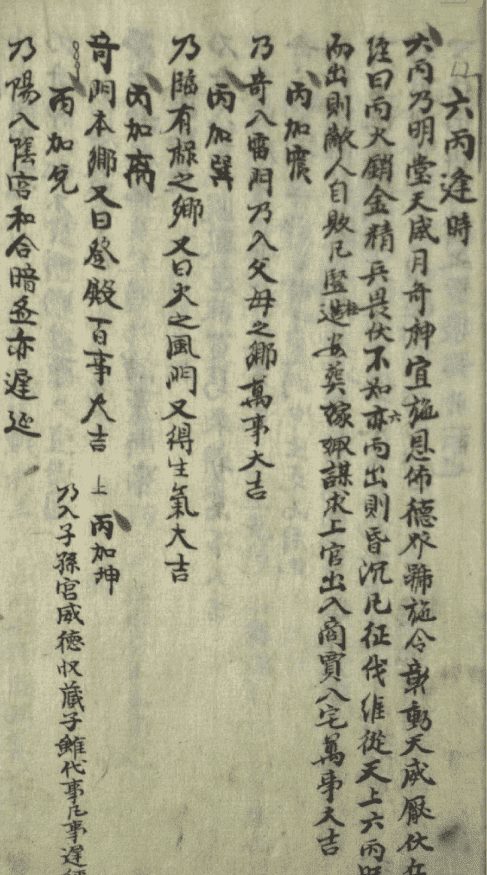 六丙逢時
六丙乃明堂天威月奇神宜施恩佈德發號施令彰動天威厭伏
經曰丙火銷金精兵畏伏不知亦六丙出則昏沉凡征伐維從天上六丙
而出則敵人自敗凡豎造安葬嫁娶謀求上官出入商賈入宅萬事大吉
丙加震
乃奇入雷門乃入父母之鄉萬事大吉
丙加巽
乃臨有祿之鄉又曰火之風門又得生氣大吉
丙加离
奇門本鄉又曰登殿百事大吉 上 丙加坤
乃入子孫宮威德收藏子雖代事凡事遲
丙加兌
乃陽入陰宮和合暗亦遲延